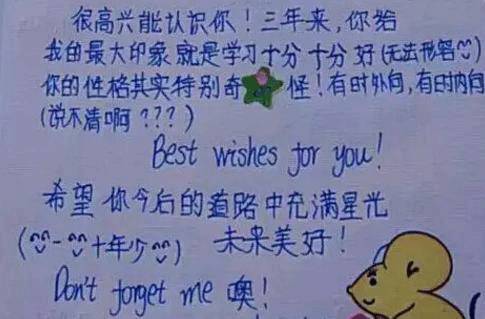 很高兴能认识你！三年来，你给
我的最大印象就是学习十分十分好(无法形容)
你的性格其实特别奇怪！有时外向，有时内向
(说不清啊？？？)
Best wishes for you!
希望你今后的道路中充满星光
(一十年少) 未来美好！
Don't forget me 噢！